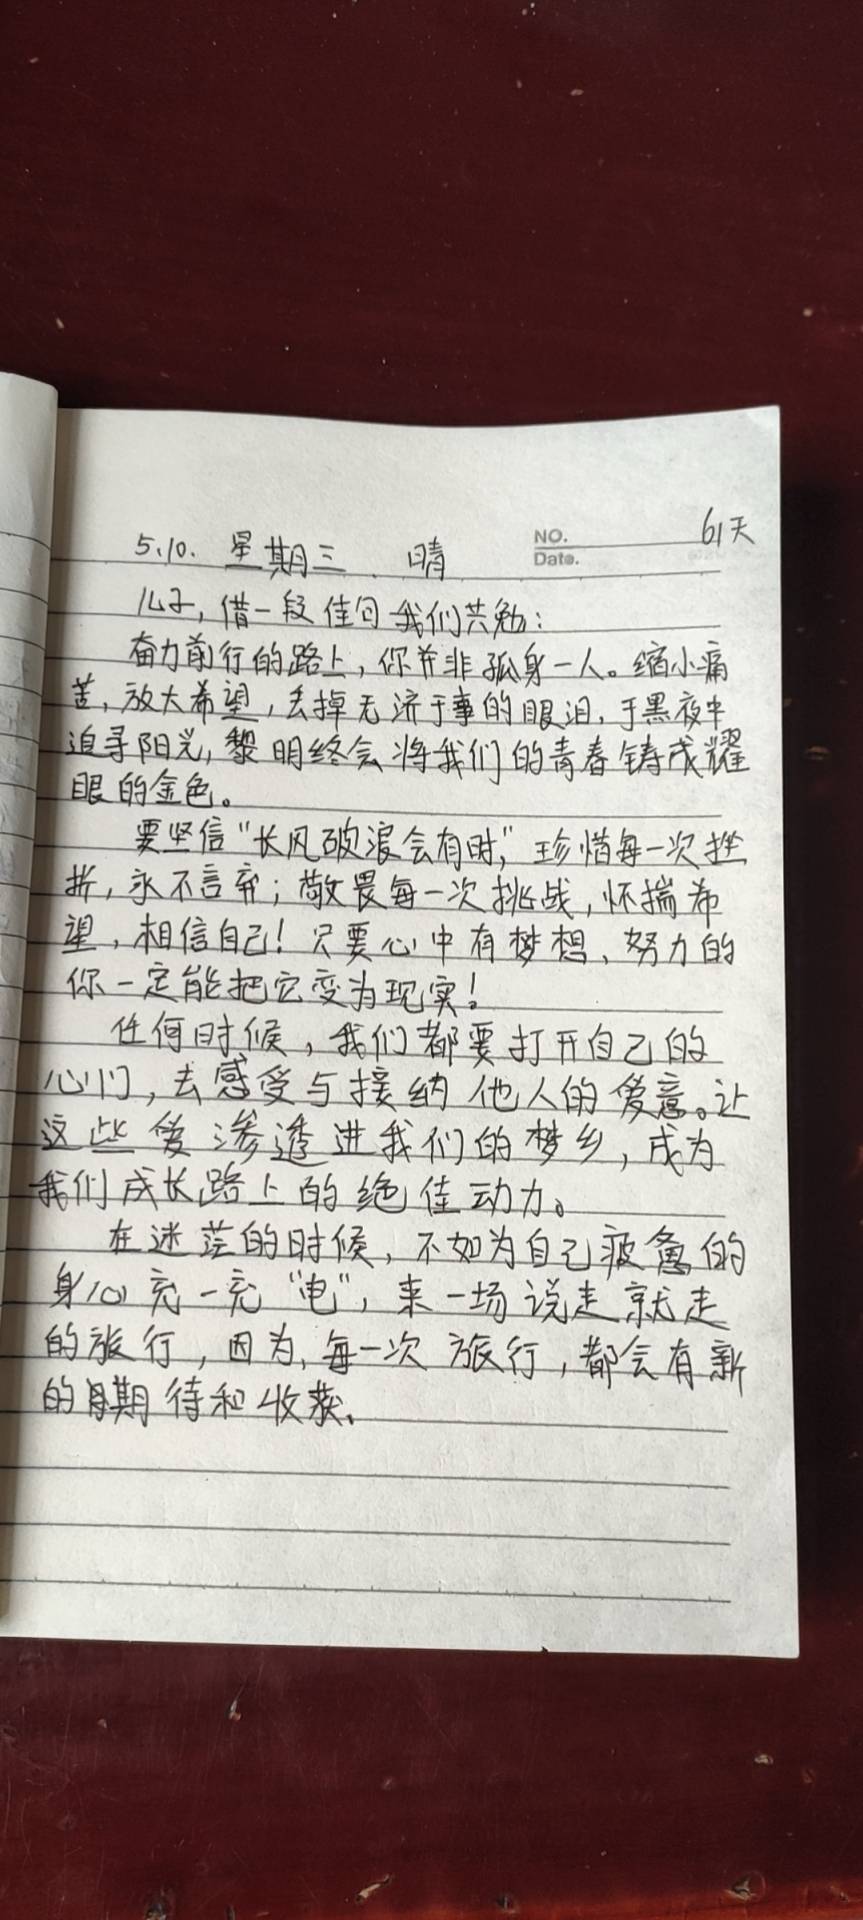 61天
NO.
Date.
5.10. 星期三 晴
儿子,借一段佳句我们共勉:
奋力前行的路上,你并非孤身一人。缩小痛
苦,放大希望,丢掉无济于事的眼泪,于黑夜中
追寻阳光,黎明终会将我们的青春铸成耀
眼的金色。
要坚信“长风破浪会有时,”珍惜每一次挫
折,永不言弃;敬畏每一次挑战,怀揣希
望,相信自己!只要心中有梦想、努力的
你一定能把它变为现实!
任何时候,我们都要打开自己的
心门,去感受与接纳他人的爱意。让
这些爱渗透进我们的梦乡,成为
我们成长路上的绝佳动力。
在迷茫的时候,不如为自己疲惫的
身心充一充“电”,来一场说走就走
的旅行,因为,每一次旅行,都会有新
的期待和收获、